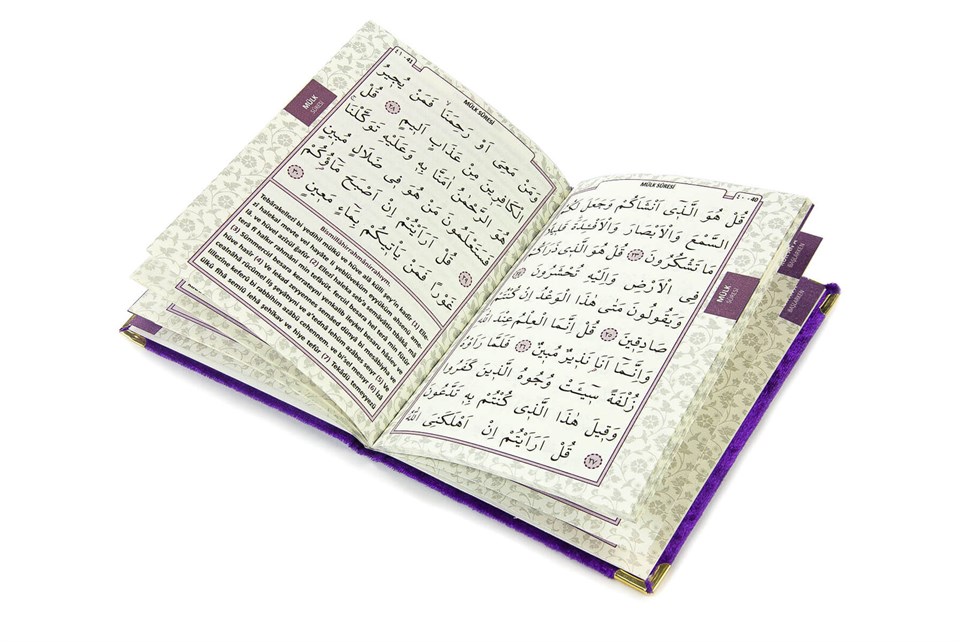 MÜLK SÛRESİ
٤٠ - 40
قُلْ هُوَ الَّذٖٓي اَنْشَاَكُمْ وَجَعَلَ لَكُمُ
السَّمْعَ وَالْاَبْصَارَ وَالْاَفْـِٔدَةَ قَلٖيلًا
مَا تَشْكُرُونَ ﴿٢٣﴾ قُلْ هُوَ الَّذٖي ذَرَاَكُمْ
فِي الْاَرْضِ وَاِلَيْهِ تُحْشَرُونَ ﴿٢٤﴾
وَيَقُولُونَ مَتٰى هٰذَا الْوَعْدُ اِنْ كُنْتُمْ
صَادِقٖينَ ﴿٢٥﴾ قُلْ اِنَّمَا الْعِلْمُ عِنْدَ اللّٰهِ
وَاِنَّمَٓا اَنَا۬ نَذٖيرٌ مُبٖينٌ ﴿٢٦﴾ فَلَمَّا رَاَوْهُ
زُلْفَةً سٖٓيـَٔتْ وُجُوهُ الَّذٖينَ كَفَرُوا
وَقٖيلَ هٰذَا الَّذٖي كُنْتُمْ بِهٖ تَدَّعُونَ
﴿٢٧﴾ قُلْ اَرَاَيْتُمْ اِنْ اَهْلَكَنِيَ اللّٰهُ
MÜLK
SÛRESİ
٤١ - 41
MÜLK SÛRESİ
وَمَنْ مَعِيَ اَوْ رَحِمَنَا فَمَنْ يُجٖيرُ
الْكَافِرٖينَ مِنْ عَذَابٍ اَلٖيمٍ ﴿٢٨﴾ قُلْ
هُوَ الرَّحْمٰنُ اٰمَنَّا بِهٖ وَعَلَيْهِ تَوَكَّلْنَا
فَسَتَعْلَمُونَ مَنْ هُوَ فٖي ضَلَالٍ مُبٖينٍ
﴿٢٩﴾ قُلْ اَرَاَيْتُمْ اِنْ اَصْبَحَ مَٓاؤُ۬كُمْ
غَوْرًا فَمَنْ يَأْتٖيكُمْ بِمَٓاءٍ مَعٖينٍ ﴿٣٠﴾
Bismillâhirrahmânirrahîym.
Tebârakellezî bi yedihil mülkü ve hüve alâ külli şey'in kadîr (1) Elle-
zî halekal mevte vel hayâte li yeblüveküm eyyüküm ahsenü ame-
lâ, ve hüvel azîzül ğafûr (2) Ellezî haleka seb'a semâvâtin tıbâkâ, mâ
terâ fî halkır rahmâni min tefâvüt, ferciıl besara hel terâ min fütûr
(3) Sümmerciıl besara kerrateyni yenkalib ileykel besaru hâsiev ve
hüve hasîr (4) Ve lekad zeyyennes semâed dünyâ bi mesâbîyha ve
cealnâhâ rücûmel liş şeyâtîyni ve a'tednâ lehüm azâbes seıyr (5) Ve
lillezîne keferû bi rabbihim azâbü cehennem, ve bi'sel mesıyr (6) İzâ
ülkû fîhâ semiû lehâ şehîkav ve hiye tefûr (7) Tekâdü temeyyezü
MÜLK
SÛRESİ